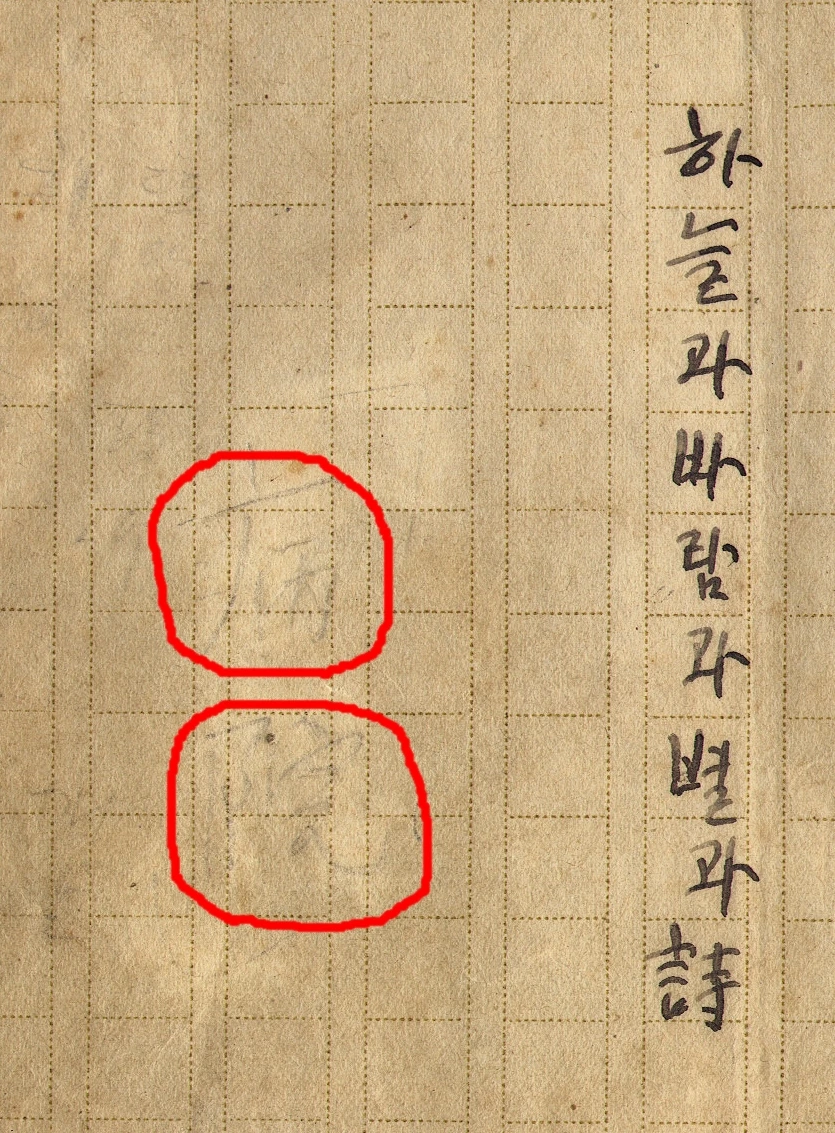 하늘과바람과별과詩
病